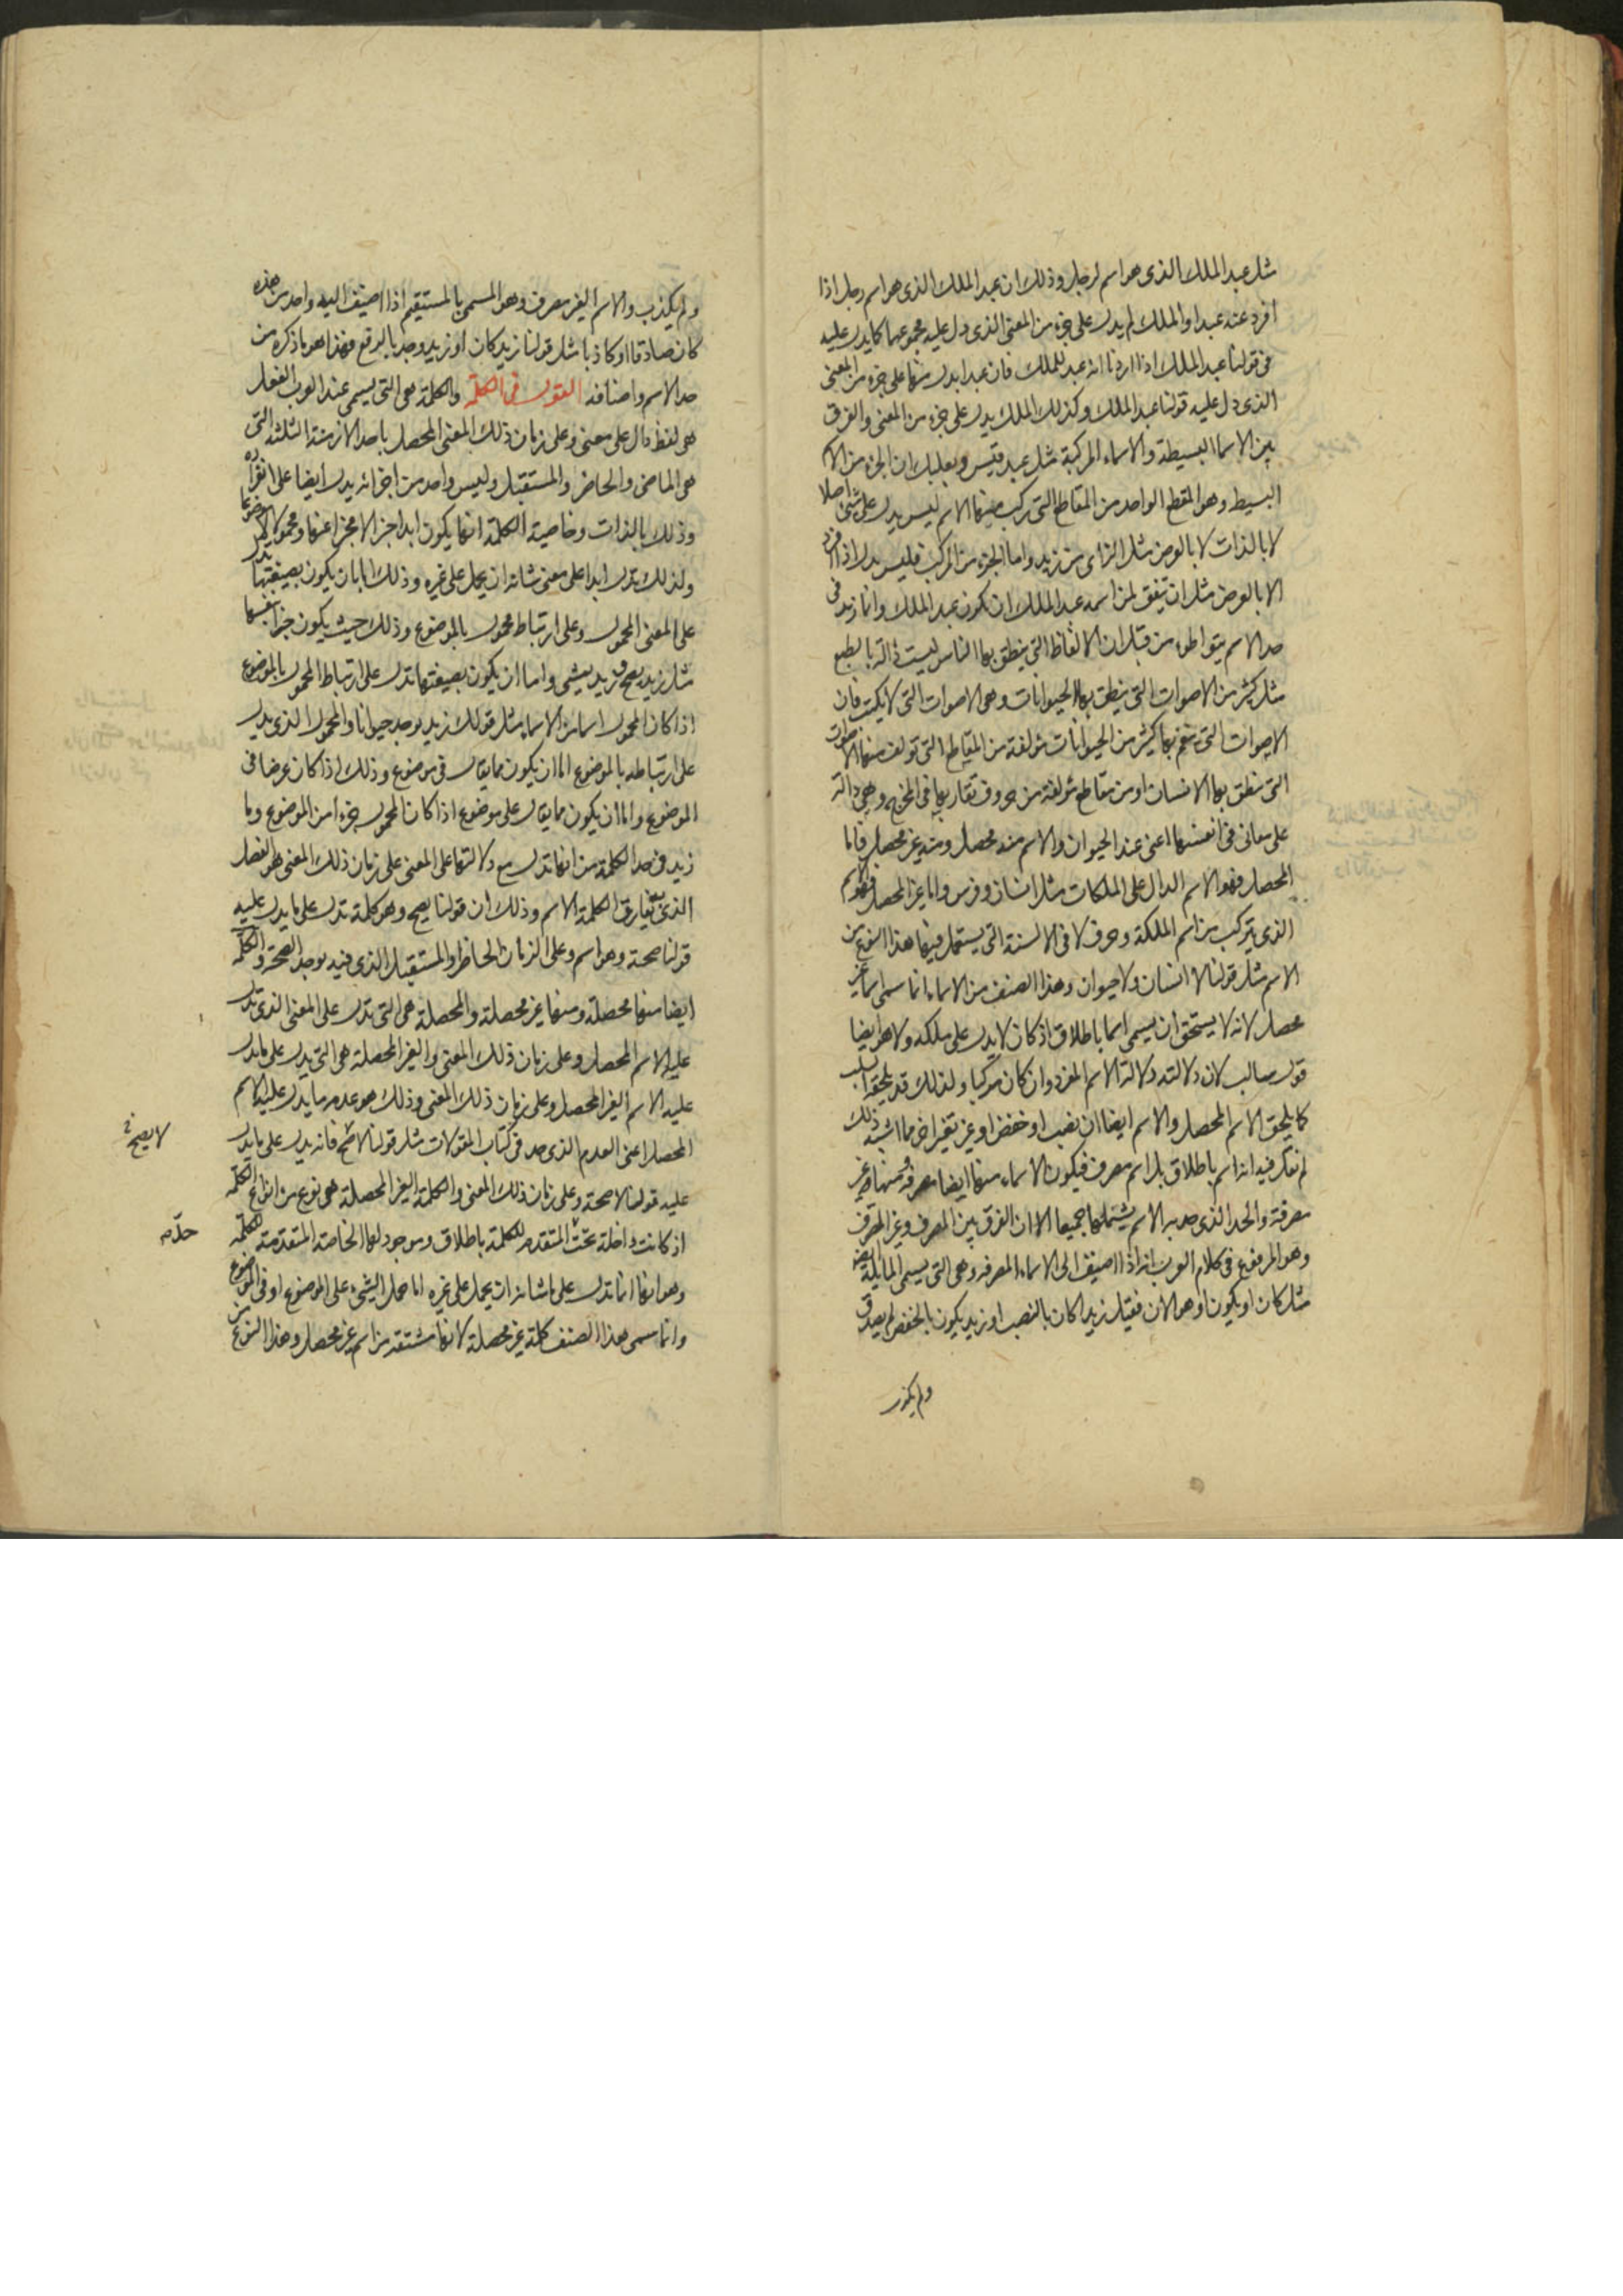 مثل عبد الملك الذى هو اسم لرجل وذلك ان عبد الملك الذى هو اسم رجل اذا
افرد عنه عبد او الملك لم يدل على جزء من المعنى الذى دل عليه مجموعهما كما يدل عليه
فى قولنا عبد الملك اذا اردنا انه عبد للملك فان عبدا يدل منها على جزء من المعنى
الذى دل عليه قولنا عبد الملك وكذلك الملك يدل على جزء من المعنى والفرق
بين الاسماء البسيطة والاسماء المركبة مثل عبد قيس وبعلبك ان الجزء من الاسم
البسيط وهو المقطع الواحد من المقاطع التى تركب منها الاسم ليس يدل على شئ اصلا
لا بالذات لا بالعرض مثل الزاى من زيد واما الجزء من المركب فليس يدل اذا افرد
الا بالعرض مثل ان يتفق لمن اسمه عبد الملك ان يكون عبد الملك وانما زيد فى
حد الاسم بتواطوء من قبل ان الالفاظ التى ينطق بها الناس ليست دالة بالطبع
مثل كثير من الاصوات التى ينطق بها الحيوانات وهى الاصوات التى لا يكتب فان
الاصوات التى ينغم بها كثير من الحيوانات مؤلفة من المقاطع التى تولف منها الاصوات
التى ينطق بها الانسان او من مقاطع مؤلفة من حروف تقاربها فى المخرج وهى دالة
على معانى فى انفسها اعنى عند الحيوان والاسم منه محصل ومنه غير محصل فاما
المحصل فهو الاسم الدال على الملكات مثل انسان وفرس واما غير المحصل فهو الاسم
الذى يتركب من اسم الملكة وحرف لا فى الالسنة التى يستعمل فيها هذا النوع من
الاسم مثل قولنا لا انسان ولا حيوان وهذا الصنف من الاسماء انما سمى اسما غير
محصل لانه لا يستحق ان يسمى اسما باطلاق اذ كان لا يدل على ملكه ولا هو ايضا
قول سالب لان دلالته دلالة الاسم المفرد وان كان مركبا ولذلك قد يلحقه السلب
كما يلحق الاسم المحصل والاسم ايضا ان نصب او خفض او غير تغير اخر مما اشبه ذلك
لم نقل فيه انه اسم باطلاق بل اسم مصرف فيكون الاسماء منها ايضا مصرفة ومنها غير
مصرفة والحد الذى حد به الاسم يشتملها جميعا الا ان الفرق بين المصرف وغير المصرف
وهو المرفوع فى كلام العرب انه اذا اضيف الى الاسماء المصرفه وهى التى يسمى المايلة
مثل كان او يكون او هو الان فقيل زيدا كان بالنصب او زيد يكون بالخفض لم يصدق
ولم يكذب
ولم يكذب والاسم الغير مصرف وهو المسمى بالمستقيم اذا اضيف اليه واحد من هذه
كان صادقا او كاذبا مثل قولنا زيد كان او زيد وجد بالرفع فهذا هو ما ذكره من
حد الاسم واصنافه القول فى الكلمة والكلمة هى التى يسمى عند العرب الفعل
هى لفظ دال على معنى وعلى زمان ذلك المعنى المحصل باحد الازمنة الثلثة التى
هى الماضى والحاضر والمستقبل وليس واحد من اجزائه يدل ايضا على انفراده
وذلك بالذات وخاصية الكلمة انها يكون ابدا جزءا لا مخبرا عنها ومحمولا لا موضوعا
ولذلك تدل ابدا على معنى شانه ان يحمل على غيره وذلك اما بان يكون بصيغتها تدل
على المعنى المحمول وعلى ارتباط محمول بالموضوع وذلك حيث يكون خبرا بنفسها
مثل زيد يصح وزيد يمشى واما ان يكون بصيغتها تدل على ارتباط المحمول بالموضوع
اذا كان المحمول اسما من الاسماء مثل قولك زيد يوجد حيوانا والمحمول الذى يدل
على ارتباطه بالموضوع اما ان يكون مما يقال فى موضوع وذلك اذا كان عرضا فى
الموضوع واما ان يكون مما يقال على موضوع اذا كان المحمول جزءا من الموضوع وما
زيد فى حد الكلمة من انها تدل مع دلالتها على المعنى على زمان ذلك المعنى هو الفصل
الذى به يفارق الكلمة الاسم وذلك ان قولنا يصح وهو كلمة تدل على ما يدل عليه
قولنا صحة وهو اسم وعلى الزمان الحاضر او المستقبل الذى فيه يوجد الصحة والكلمة
ايضا منها محصلة ومنها غير محصلة والمحصلة هى التى تدل على المعنى الذى تدل
عليه الاسم المحصل وعلى زمان ذلك المعنى والغير المحصلة هى التى يدل على ما يدل
عليه الاسم الغير المحصل وعلى زمان ذلك المعنى وذلك هو عدم ما يدل عليه الاسم
المحصل اعنى العدم الذى حد فى كتاب المقولات مثل قولنا لا صح فانه يدل على ما يدل
لا يصح خ
عليه قولنا لا صحة وعلى زمان ذلك المعنى والكلمة الغير المحصلة هى نوع من انواع الكلمة
اذ كانت داخلة تحت المتقدم للكلمة باطلاق وموجود لها الخاصة المتقدمة للكلمة
حدّه
وهو انها انما تدل على ما شانه ان يحمل على غيره اما حمل الشئ على الموضوع او فى الموضوع
وانما سمى هذا الصنف كلمة غير محصلة لانها مشتقة من اسم غير محصل وهذا النوع من